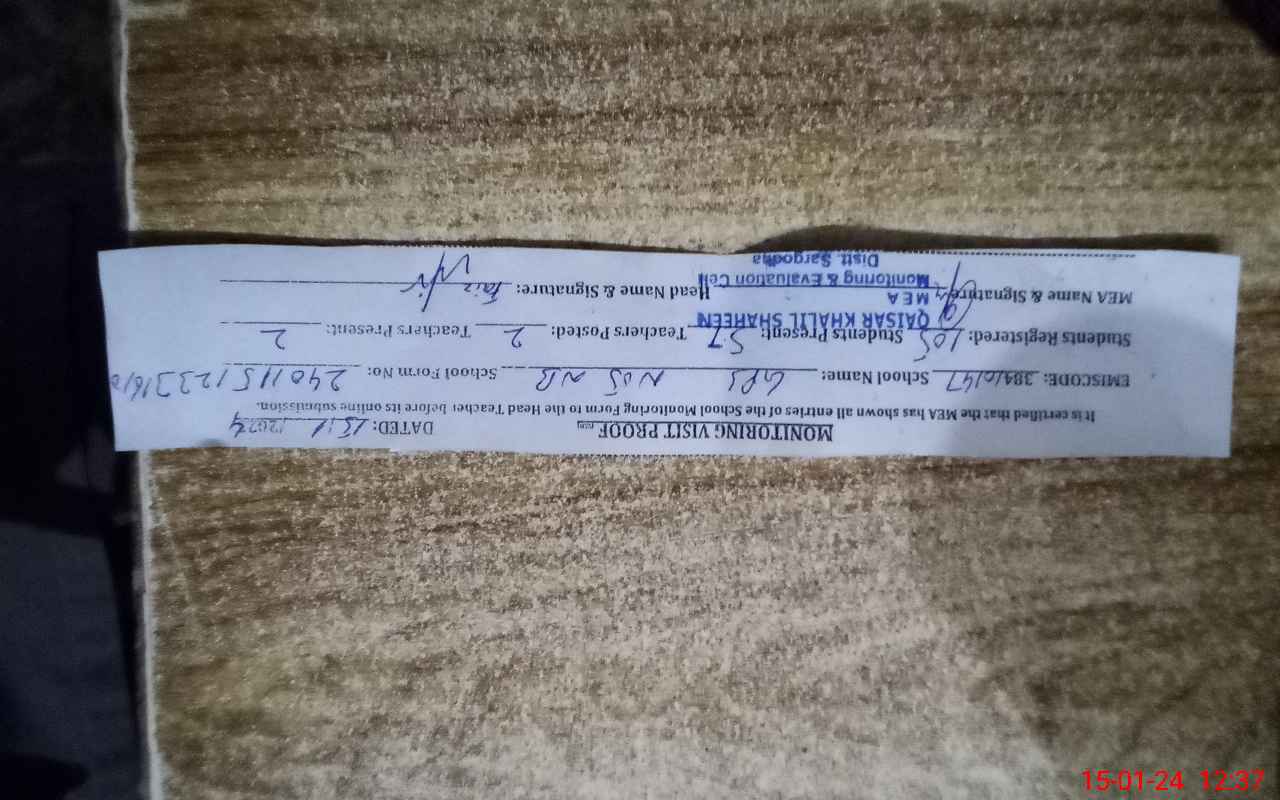 MONITORING VISIT PROOF
DATED: 15/1/2024
It is certified that the MEA has shown all entries of the School Monitoring Form to the Head Teacher before its online submission.
EMISCODE: 38410147 School Name: GPS No5 NB School Form No:
Students Registered: 105 Students Present: 57 Teachers Posted: 2 Teachers Present: 2
QAISAR KHALIL SHAHEEN
MEA
MEA Name & Signature: Head Name & Signature: Faiz
Monitoring & Evaluation Cell
Distt. Sargodha
15-01-24 12:37